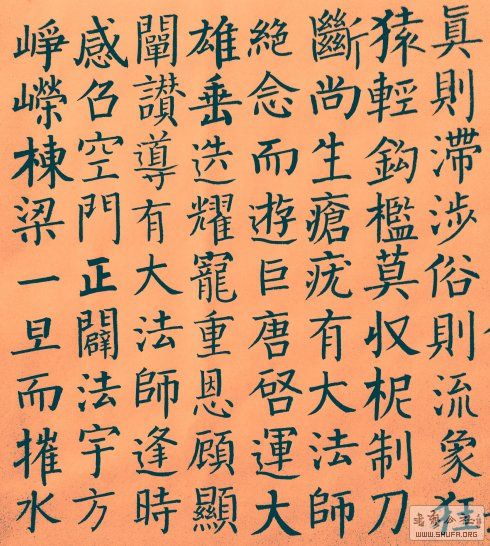 眞則滯涉俗則流象狂
猿輕鈎檻莫収柅制刀
斷尚生瘡疣有大法師
絶念而遊巨唐啓運大
雄垂迭耀寵重恩顧顯
闡讃導有大法師逢時
感召空門正闢法宇方
崢嶸棟梁一旦而摧水
WWW.SHUFA.ORG